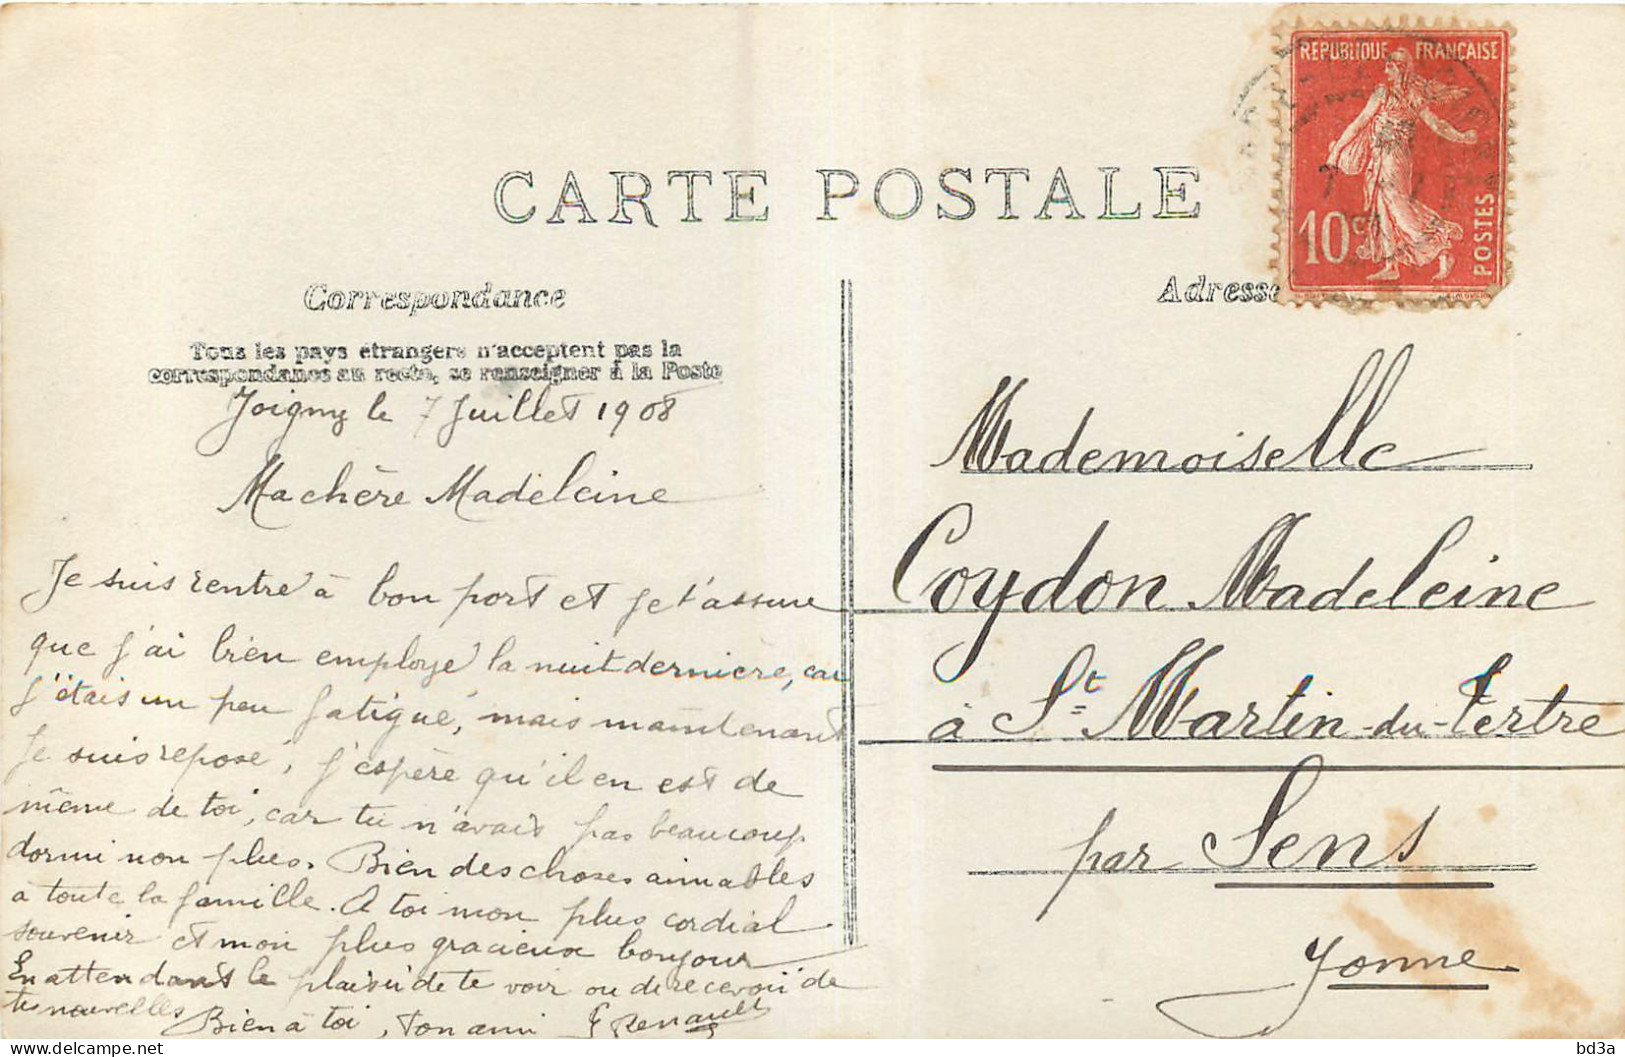 REPUBLIQUE FRANÇAISE
10 c
POSTES
CARTE POSTALE
Correspondance
Adresse
Tous les pays étrangers n'acceptent pas la
correspondance au recto, se renseigner à la Poste
Joigny le 7 Juillet 1908
Ma chère Madeleine
Je suis rentré à bon port et je t'assure
que j'ai bien employé la nuit dernière, car
j'étais un peu fatigué, mais maintenant
je suis reposé, j'espère qu'il en est de
même de toi, car tu n'avais pas beaucoup
dormi non plus. Bien des choses aimables
à toute la famille. A toi mon plus cordial
souvenir et mon plus gracieux bonjour
En attendant le plaisir de te voir ou de recevoir de
tes nouvelles Bien à toi, ton ami Renault
Mademoiselle
Coydon Madeleine
à St Martin-du-Tertre
par Sens
Yonne
bd3a